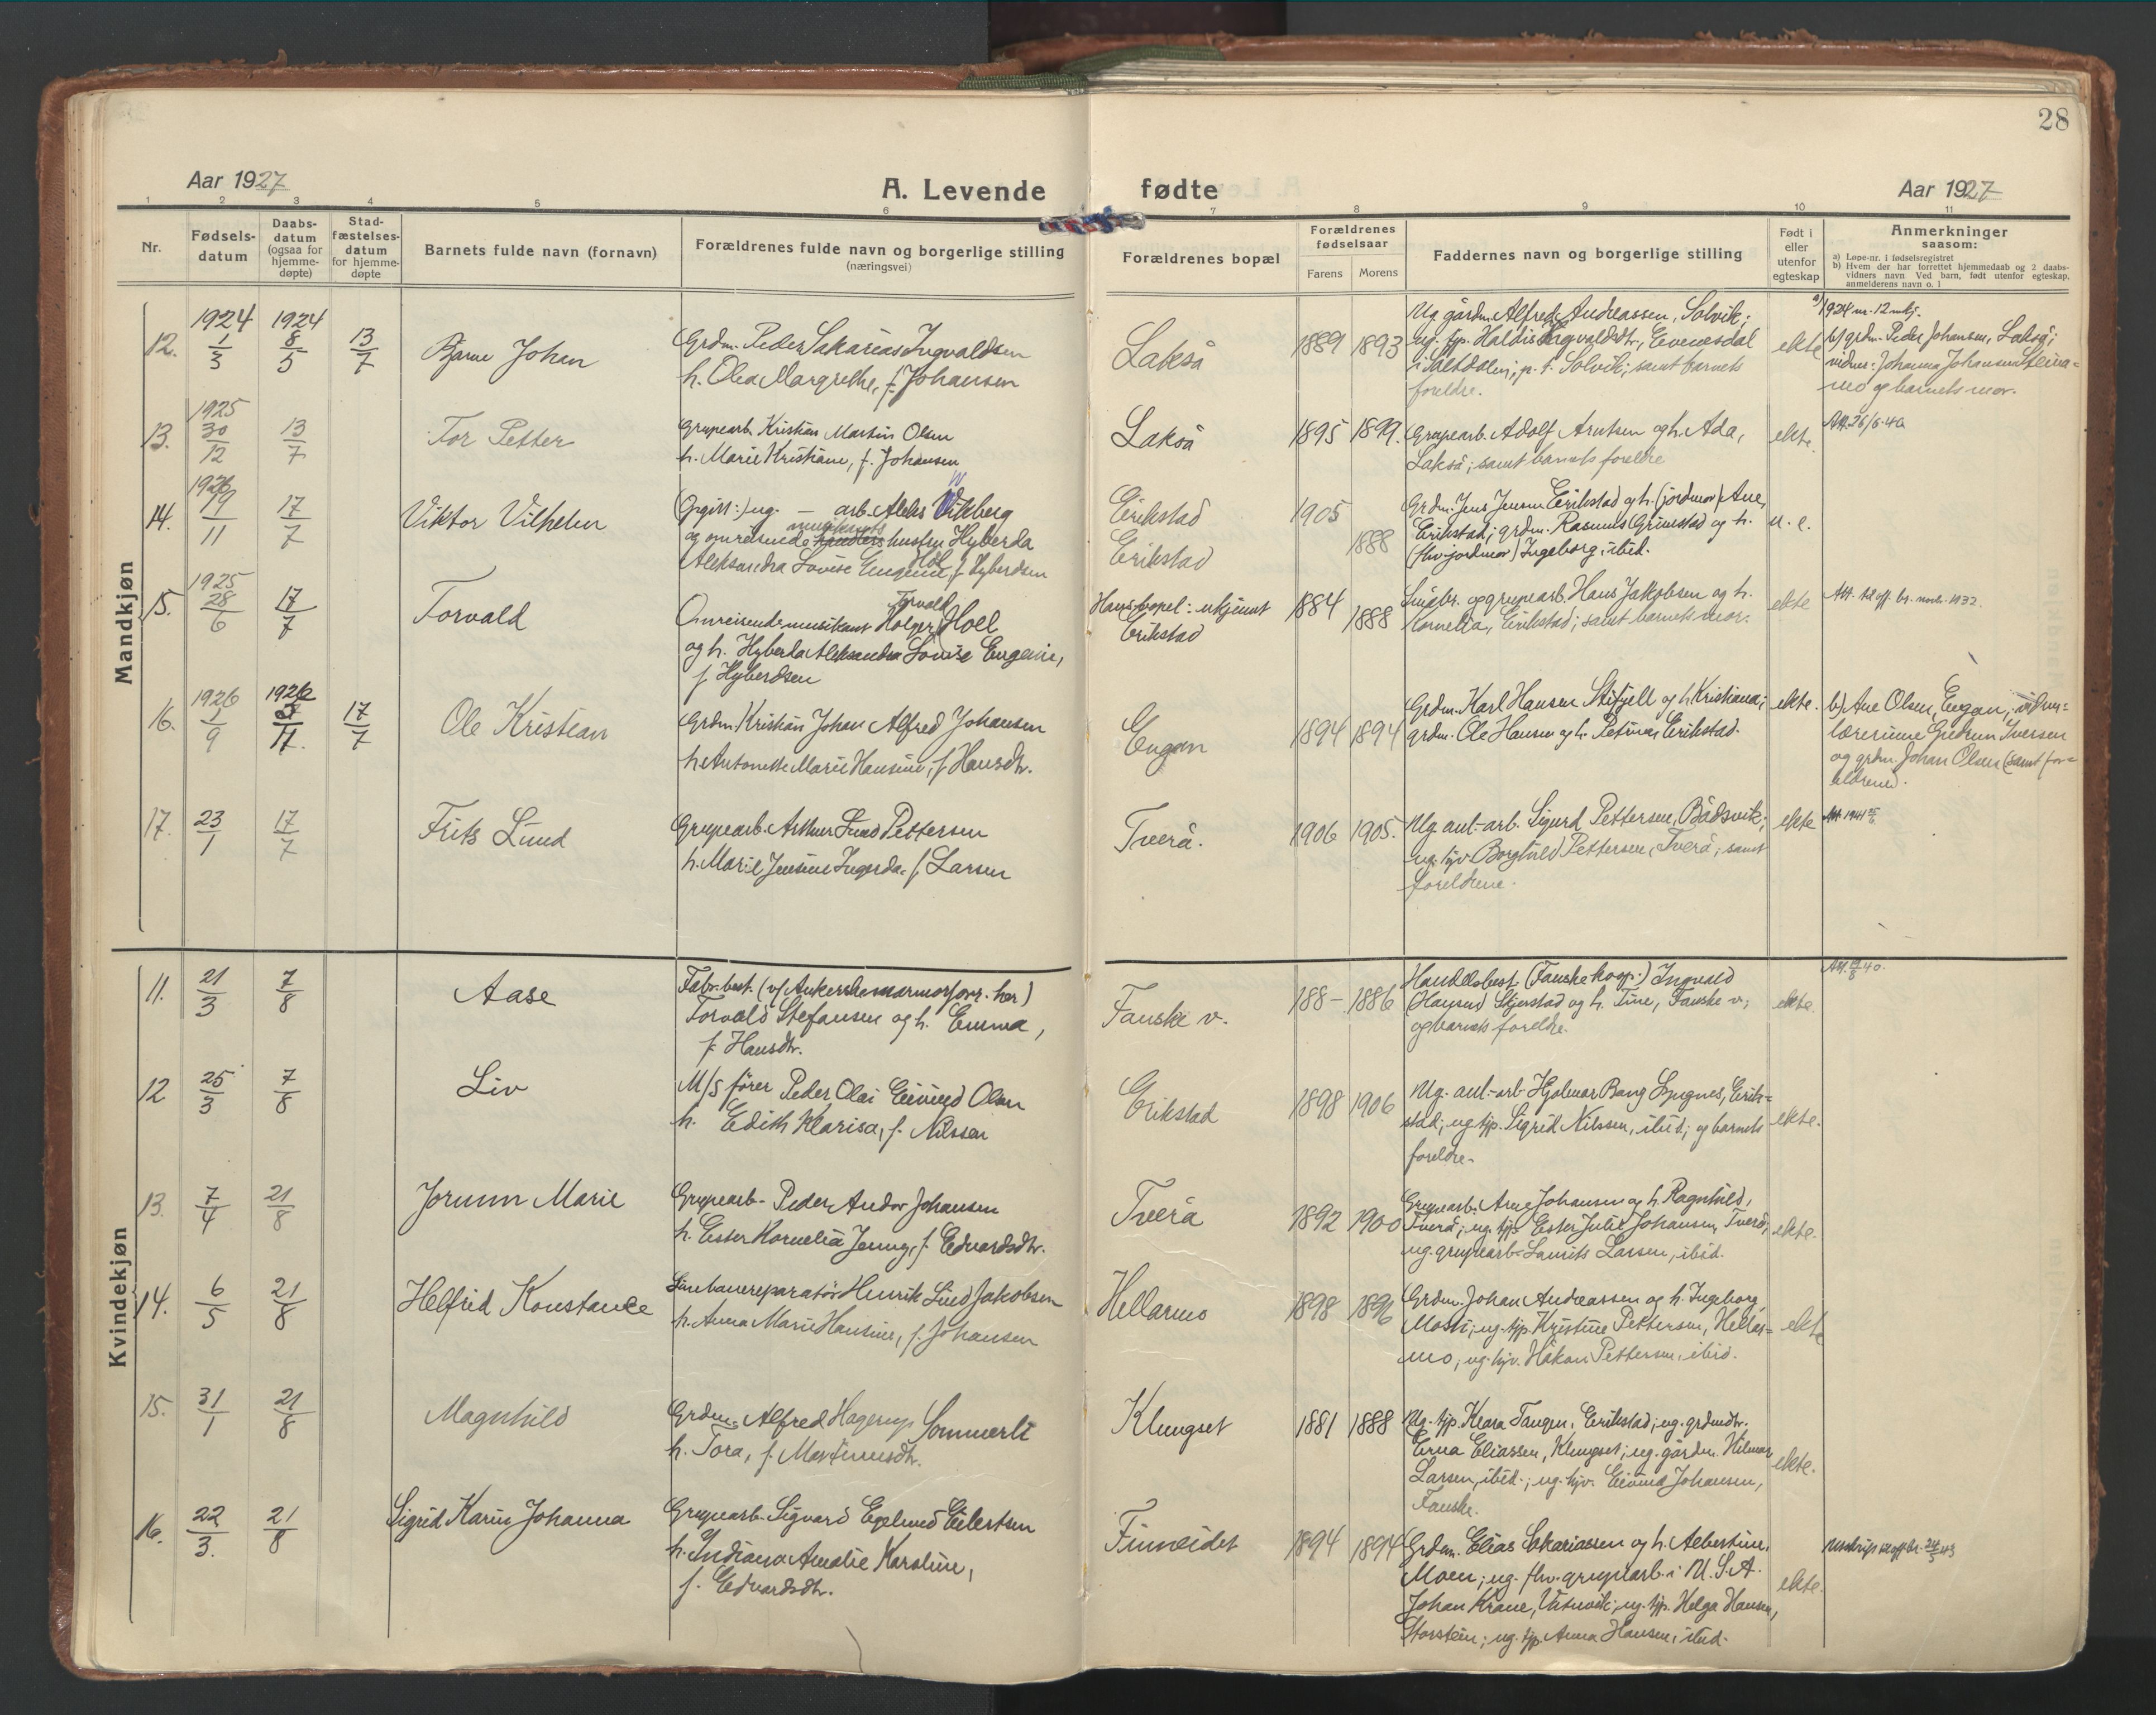 28
Aar 1927
A. Levende fødte
Aar 1927
1 2 3 4 5 6 7 8 9 10 11
Nr.
Fødsels-
datum
Daabs-
datum
(ogsaa for
hjemme-
døpte)
Stad-
fæstelses-
datum
for hjemme-
døpte
Barnets fulde navn (fornavn)
Forældrenes fulde navn og borgerlige stilling
(næringsvei)
Forældrenes bopæl
Forældrenes
fødselsaar
Farens Morens
Faddernes navn og borgerlige stilling
Født i
eller
utenfor
egteskap
Anmerkninger
saasom:
a) Løpe-nr. i fødselsregistret
b) Hvem der har forrettet hjemmedaab og 2 daabs-
vidners navn Ved barn, født utenfor egteskap,
anmelderens navn o. l
Mandkjøn
12. 1924 1/3 1924 8/5 13/7
Bjarne Johan
Grdm. Peder Sakarias Ingvaldsen
h. Olea Margrethe, f. Johansen
Lakså
1889 1893
Ug. gårdm. Alfred Andreassen, Solvik;
ug. tjp. Haldis Ingvaldsdtr., Evenesdal
i Saltdalen, p. t. Solvik; samt barnets
foreldre.
ekte
a) 1924 nr. 12 mkj.
b) grdm. Peder Johansen, Lakså;
vidner: Johanna Johansen
mo og barnets mor.
13. 1925 30/12 13/7
Tor Petter
Grupearb. Kristian Martin Olsen
h. Marie Kristiane, f. Johansen
Lakså
1895 1899.
Grupearb. Adolf Arntsen og h. Ada,
Lakså; samt barnets foreldre
ekte
Att. 26/6-40
14. 1926 19/11 17/7
Viktor Vilhelm
(Opgitt:) ug. — arb. Aleks Vikberg
og omreisende musikants hustru Hyberda
Aleksandra Lovise Eugenie Hoel, f. Hyberdsen
Erikstad
Erikstad
1905
1888
Grdm. Jens Jensen Erikstad og h. (jordmor) Ane,
Erikstad; grdm. Rasmus Grimstad og h.
(fhv. jordmor) Ingeborg, ibid.
u. e.
15. 1925 28/6 17/7
Torvald
Omreisende musikant Holger Torvald Hoel
og h. Hyberda Aleksandra Lovise Eugenie,
f. Hyberdsen
Hans bopel: ukjennt
Erikstad
1884
1888
Småbr. og grupearb. Hans Jakobsen og h.
Kornelia, Erikstad; samt barnets mor.
ekte
Att. til off. br. 1932.
16. 1926 1/9 1926 17/7
Ole Kristian
Grdm. Kristian Johan Alfred Johansen
h. Antonette Marie Hansine, f. Hansdtr.
Engan
1894 1894
Grdm. Karl Hansen Stifjell og h. Kristiana;
grdm. Ole Hansen og h. Petrina, Erikstad.
ekte.
b) Ane Olsen, Engan; vidner:
lærerinne Gudrun Iversen
og grdm. Johan Olsen (samt for-
eldrene).
17. 23/1 17/7
Frits Lund
Grupearb. Arthur Lund Pettersen
h. Marie Jensine Ingerda, f. Larsen
Tverå.
1906 1905.
Ug. anl.-arb. Sigurd Pettersen, Bådsvik;
ug. hjv. Borghild Pettersen, Tverå; samt
foreldrene.
ekte
Att. 1941
Kvindekjøn
11. 21/3 7/8
Aase
Fabr. best. (v/ Ankerske marmorforr. her)
Torvald Stefansen og h. Emma,
f. Hansdtr.
Fauske v.
188– 1886
Handelsbest. (Fauske koop.) Ingvald
Stjerstad og h. Tine, Fauske v.;
og barnets foreldre.
ekte.
12 25/3 7/8
Liv
M/S fører Peder Olai Eivind Olsen
h. Edith Klarisa, f. Nilssen
Erikstad
1898 1906
Ug. anl.-arb. Hjalmar Bang Lyngnes, Erik-
stad; ug. tjp. Sigrid Nilssen, ibid; og barnets
foreldre.
ekte.
13. 7/4 21/8
Jorunn Marie
Grupearb. Peder Andor Johansen
h. Ester Kornelia Jenny, f. Edvardsdtr.
Tverå
1892 1900
Grupearb. Arne Johansen og h. Ragnhild,
Tverå; ug. tjp. Ester Julie Johansen, Tverå;
ug. grupearb. Laurits Larsen, ibid.
ekte.
14. 6/5 21/8
Helfrid Konstanse
Linebanereparatør Henrik Lind Jakobsen
h. Anna Marie Hansine, f. Johansen
Hellarmo
1898 1896
Grdm. Johan Andreassen og h. Ingeborg,
Mosti; ug. tjp. Kristine Pettersen, Hellar-
mo; ug. hjv. Håkon Pettersen, ibid.
ekte
15. 31/1 21/8
Magnhild
Grdm. Alfred Hagerup Sommerli
h. Tora, f. Martinusdtr.
Klungset
1881 1888
Ug. tjp. Klara Tangen, Erikstad; ug. grdmdtr.
Erna Eliassen, Klungset; ug. gårdm. Hilmar
Larsen, ibid.; ug. hjv. Eivind Johansen,
Fauske.
ekte.
16. 22/3. 21/8
Sigrid Karin Johanna
Grupearb. Sigvard Egelund Eilertsen
h. Indiana Amalie Karoline,
f. Edvardsdtr.
Finneidet
1894 1894
Grdm. Elias Sakariassen og h. Albertine,
Moen; ug. fhv. gruplarb. i U.S.A.
Johan Krane, Vatnvik; ug. tjp. Helga Hansen,
Storstein; ug. tjp. Anna Hansen, ibid.
ekte.
Utskrift til off. br. 43